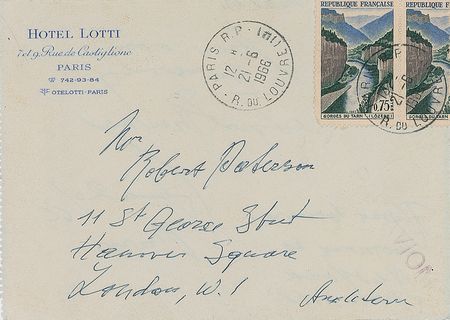 HOTEL LOTTI
7 et 9, Rue de Castiglione
PARIS
742-93-84
OTELOTTI-PARIS
PARIS R.P.
12 H
21-6
1966
R. DU LOUVRE
REPUBLIQUE FRANÇAISE
0,75
GORGES DU TARN (LOZÈRE)
21-6
R. DU LOUVRE
GORGES DU TARN
Mr
Robert Paterson
11 St George Street
Hanover Square
London, W.1
AVION